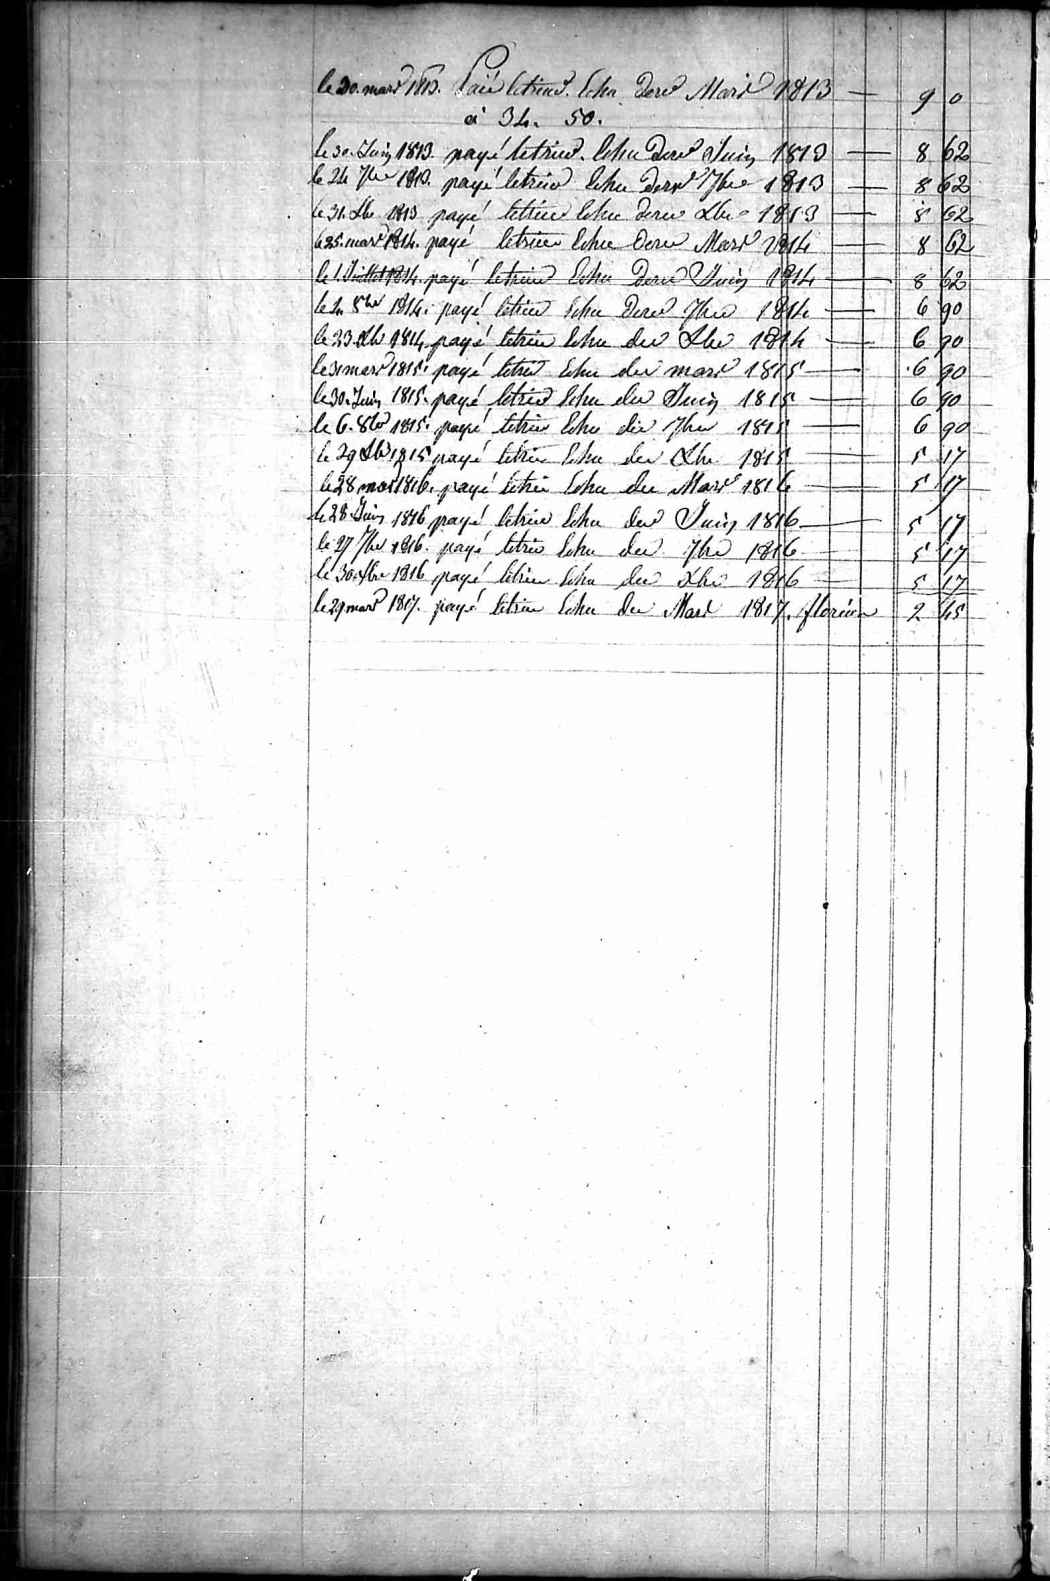 le 30. mars 1813. Paié letrim. Echu derer Mars 1813 — 9 0
à 34. 50.
le 30. Juin 1813. payé letrim. Echu derer Juin 1813 — 8 62
le 24 7bre 1813. payé letrim Echu derer 7bre 1813 — 8 62
le 31. Xbre 1813 payé letrim Echu derer Xbre 1813 — 8 62
le 25. mars 1814. payé letrim Echu derer Mars 1814 — 8 62
le 1. Juillet 1814. payé letrim Echu derer Juin 1814 — 8 62
le 2. 8bre 1814. payé letrim Echu derer 7bre 1814 — 6 90
le 23. Xbre 1814. payé letrim Echu der Xbre 1814 — 6 90
le 31 mars 1815. payé letrim Echu der mars 1815 — 6 90
le 30. Juin 1815. payé letrim Echu der Juin 1815 — 6 90
le 6. 8bre 1815. payé letrim Echu der 7bre 1815 — 6 90
le 29 Xbre 1815 payé letrim Echu der Xbre 1815 — 5 17
le 28 mars 1816. payé letrim Echu der Mars 1816 — 5 17
le 28 Juin 1816 payé letrim Echu der Juin 1816 — 5 17
le 27 7bre 1816. payé letrim Echu der 7bre 1816 — 5 17
le 30 Xbre 1816 payé letrim Echu der Xbre 1816 — 5 17
le 29 mars 1817. payé letrim Echu der Mars 1817. florein 2 45